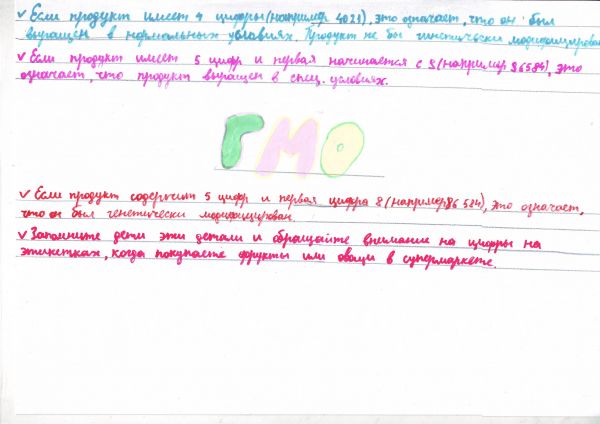 ✓ Если продукт имеет 4 цифры (например 4021), это означает, что он был
выращен в нормальных условиях. Продукт не был генетически модифицирован
✓ Если продукт имеет 5 цифр и первая начинается с 9 (например 96584), это
означает, что продукт выращен в спец. условиях.
ГМО
✓ Если продукт содержит 5 цифр и первая цифра 8 (например 86584), это означает,
что он был генетически модифицирован.
✓ Запомните дети эти детали и обращайте внимание на цифры на
этикетках, когда покупаете фрукты или овощи в супермаркете.